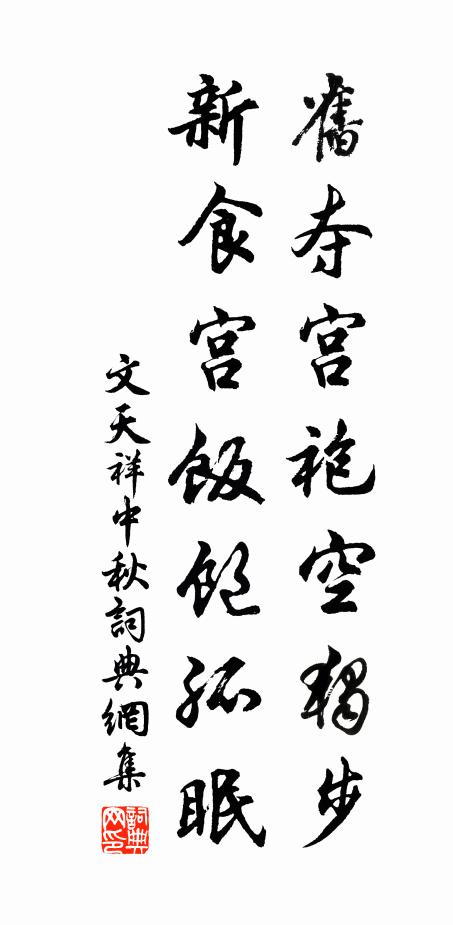 舊夺宫袍空獨步
新食宫飯飽孤眠
文天祥中秋詞典網集
詞典网印